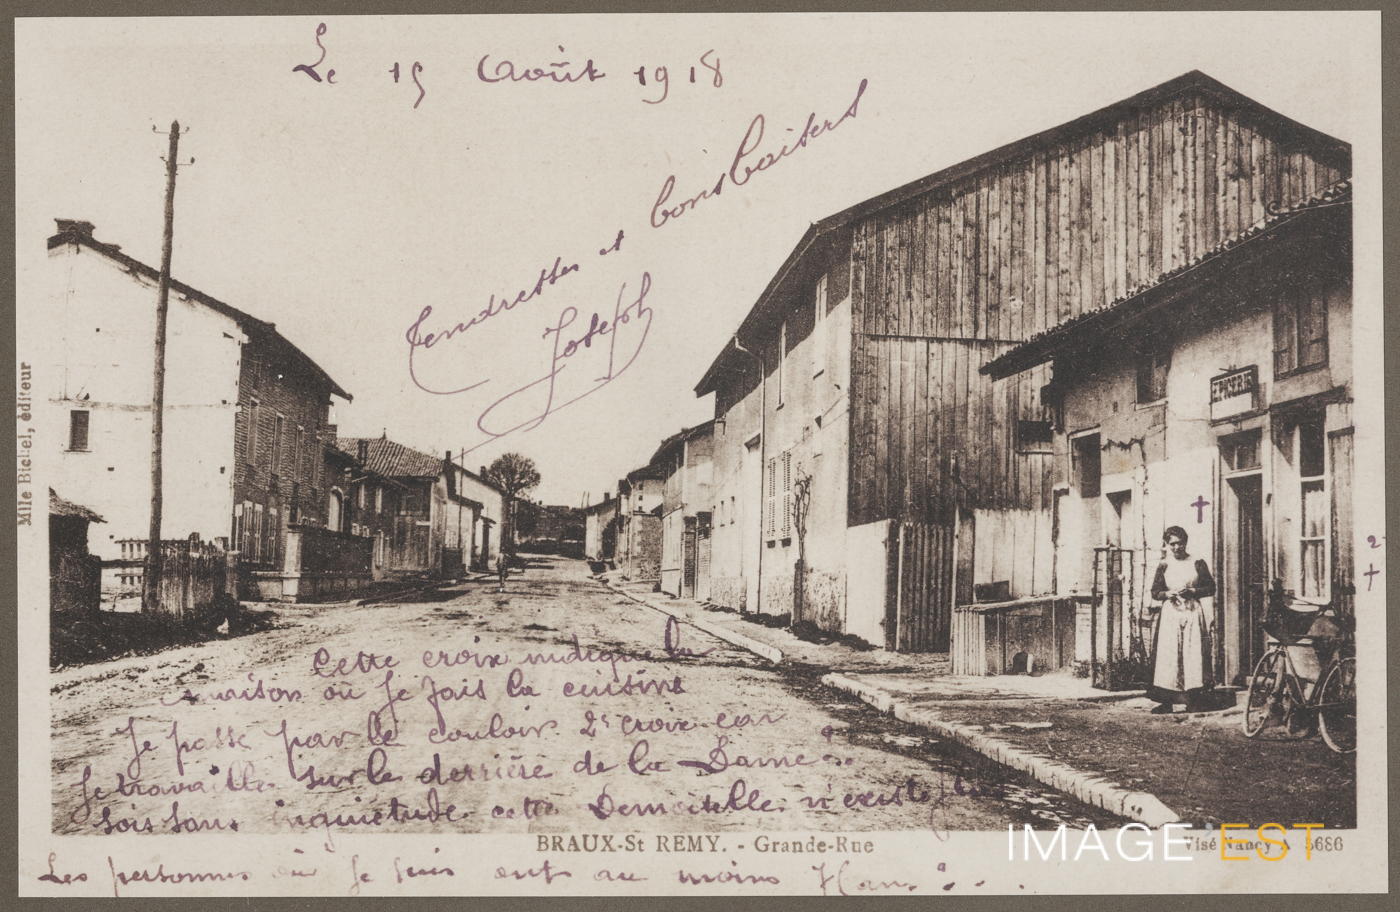 Le 15 Août 1918
Tendresses et bons baisers
Joseph
EPICERIE
Mlle Bichel, éditeur
2e
Cette croix indique la
maison où je fais la cuisine
Je passe par le couloir 2e croix car
Je travaille sur le derrière de la Dame
sois sans inquiétude cette Demoiselle n'existe plus
BRAUX-St REMY. - Grande-Rue
Visé Nancy A 5686
Les personnes où je suis ont au moins
IMAGE'EST